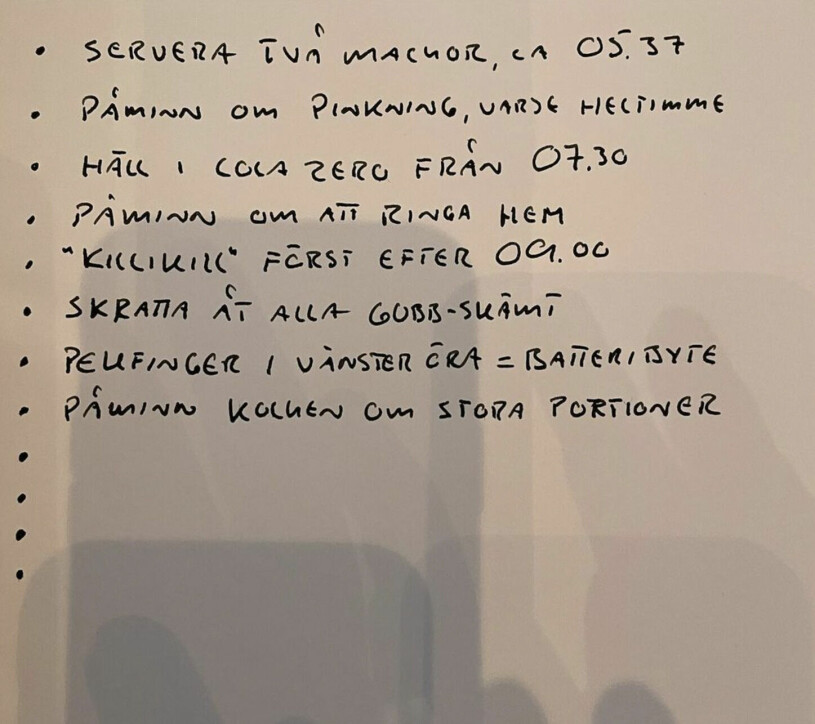 • SERVERA TVÅ MACKOR, CA 05.37
• PÅMINN OM PINKNING, VARJE HELTIMME
• HÄLL I COCA ZERO FRÅN 07.30
• PÅMINN OM ATT RINGA HEM
• "KILLIKILL" FÖRST EFTER 09.00
• SKRATTA ÅT ALLA GUBB-SKÄMT
• PEKFINGER I VÄNSTER ÖRA = BATTERIBYTE
• PÅMINN KOCKEN OM STORA PORTIONER
•
•
•
•